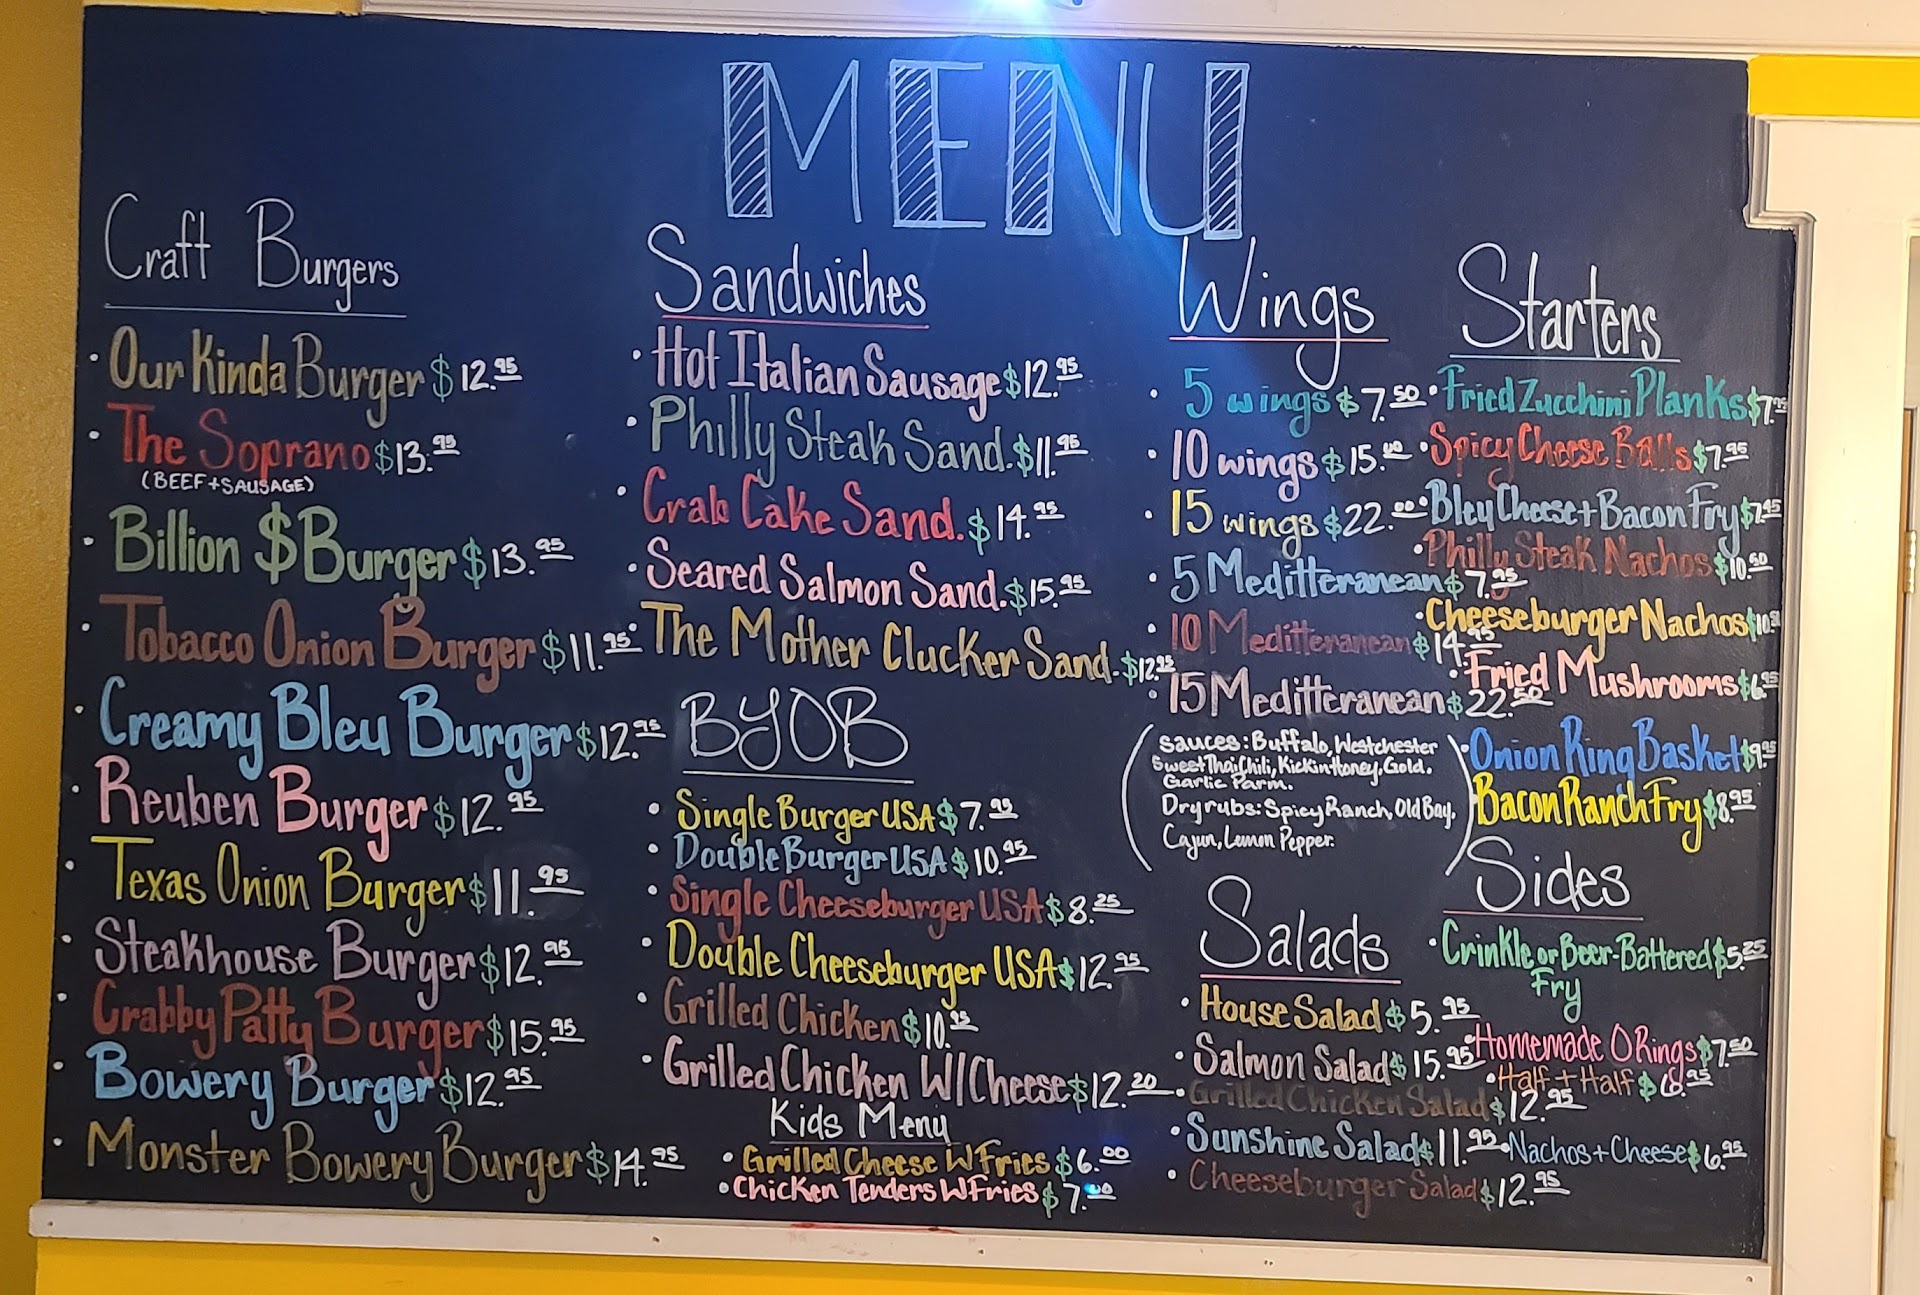 MENU
Craft Burgers
• Our Kinda Burger $12.95
• The Soprano $13.95
(BEEF + SAUSAGE)
• Billion $ Burger $13.95
• Tobacco Onion Burger $11.95
• Creamy Bleu Burger $12.95
• Reuben Burger $12.95
• Texas Onion Burger $11.95
• Steakhouse Burger $12.95
• Crabby Patty Burger $15.95
• Bowery Burger $12.95
• Monster Bowery Burger $14.95
Sandwiches
• Hot Italian Sausage $12.95
• Philly Steak Sand. $11.95
• Crab Cake Sand. $14.95
• Seared Salmon Sand. $15.95
• The Mother Clucker Sand. $12.95
BYOB
• Single Burger USA $7.95
• Double Burger USA $10.95
• Single Cheeseburger USA $8.25
• Double Cheeseburger USA $12.95
• Grilled Chicken $10.95
• Grilled Chicken W/Cheese $12.20
Kids Menu
• Grilled Cheese W Fries $6.00
• Chicken Tenders W Fries $7.00
Wings
• 5 wings $7.50
• 10 wings $15.00
• 15 wings $22.00
• 5 Meditteranean $7.95
• 10 Meditteranean $14.95
• 15 Meditteranean $22.50
(Sauces: Buffalo, Westchester
Sweet Thai Chili, Kickin Honey, Gold.
Garlic Parm.
Dry rubs: Spicy Ranch, Old Bay,
Cajun, Lemon Pepper.)
Salads
• House Salad $5.95
• Salmon Salad $15.95
• Grilled Chicken Salad $12.95
• Sunshine Salad $11.95
• Cheeseburger Salad $12.95
Starters
• Fried Zucchini Planks $7.95
• Spicy Cheese Balls $7.95
• Bleu Cheese + Bacon Fry $7.95
• Philly Steak Nachos $10.50
• Cheeseburger Nachos $10.
• Fried Mushrooms $6.95
• Onion Ring Basket $9.95
Bacon Ranch Fry $8.95
Sides
• Crinkle or Beer-Battered $5.25
Fry
• Homemade O Rings $7.50
• Half + Half $6.95
• Nachos + Cheese $6.95